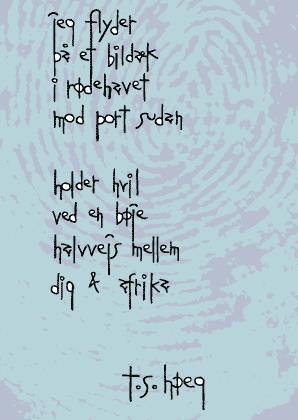 jeg flyder
på et bildæk
i rødehavet
mod port sudan
holder hvil
ved en bøje
halvvejs mellem
dig & afrika
t.s. høeg